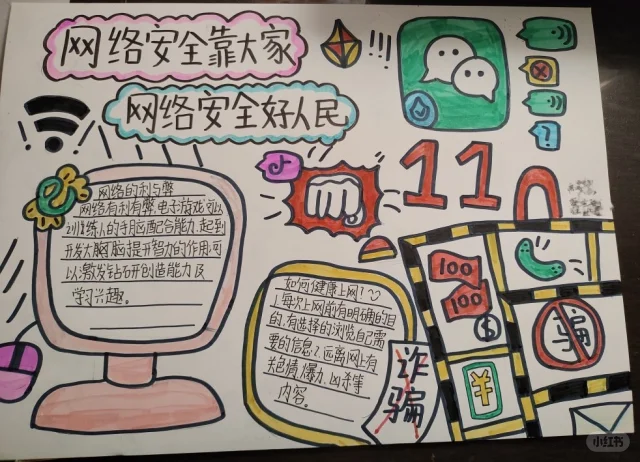 网络安全靠大家
网络安全好人民
网络的利与弊
网络有利有弊,电子游戏可以
训练人的手脑配合能力,起到
开发大脑,提开智力的作用,可
以激发钻研创造能力及
学习兴趣。
110
如何健康上网?
1.每次上网前有明确的目
的,有选择的浏览自己需
要的信息2.远离网上有
关色情,爆力,凶杀等
内容。
诈骗
100
100
$
¥
骗
小红书